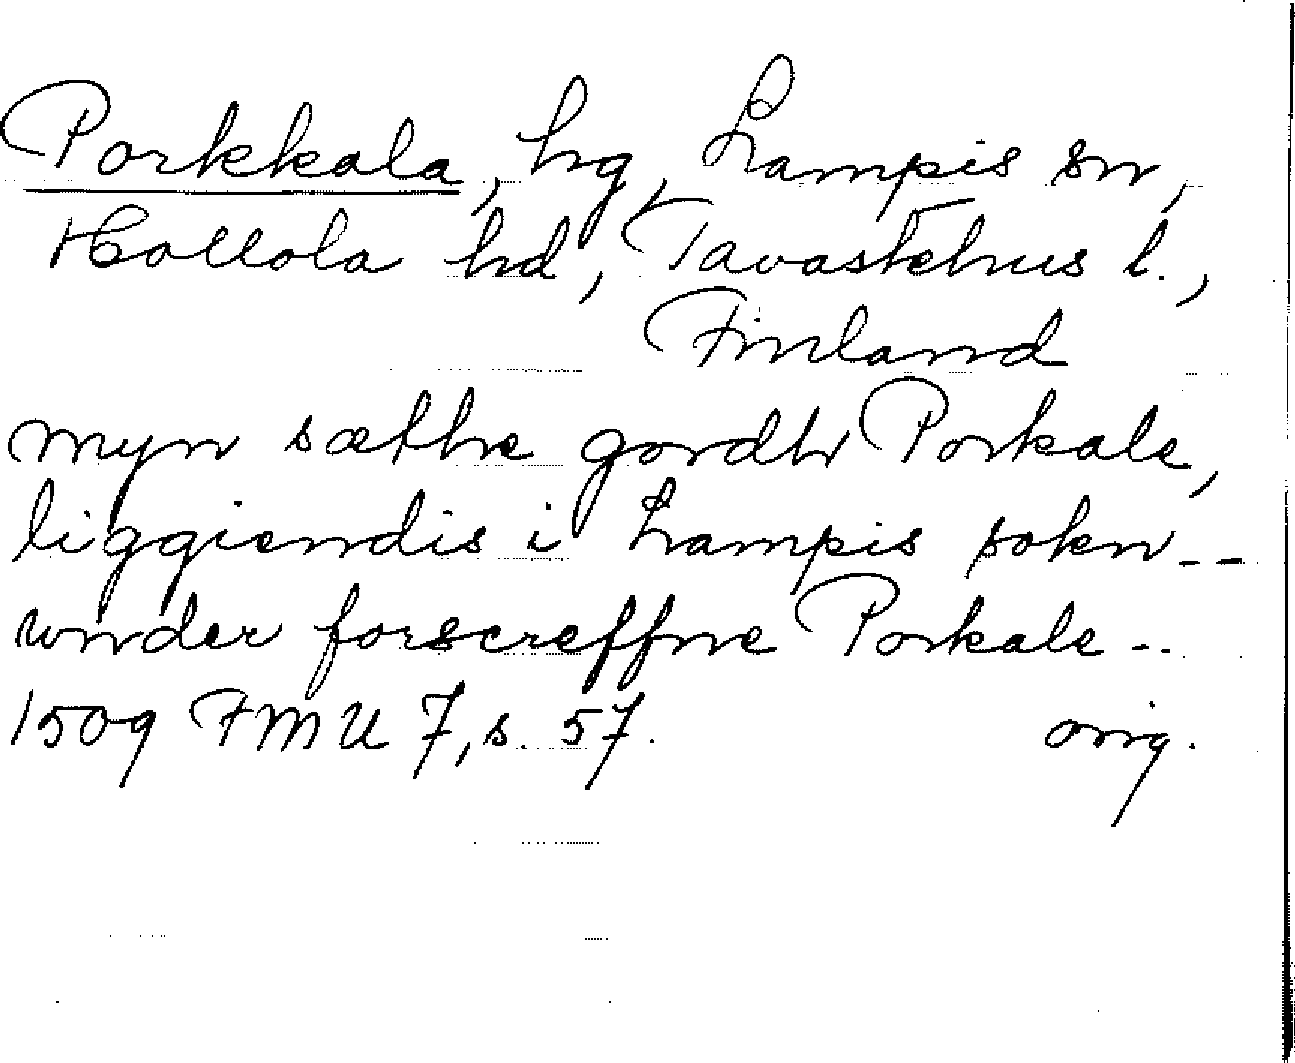 Porkkala, hg, Lampis sn,
Hollola hd, Tavastehus l.,
Finland
myn sæthe gordh Porkale,
liggiendis i Lampis sokn --
wnder forscreffne Porkale --
1509 FMU 7, s. 57. orig.